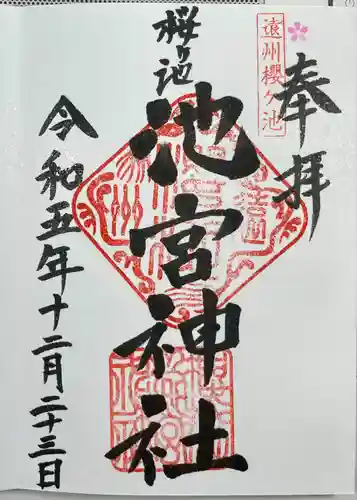 奉拝
遠州櫻ヶ池
桜ヶ池
池宮神社
令和五年十二月二十三日